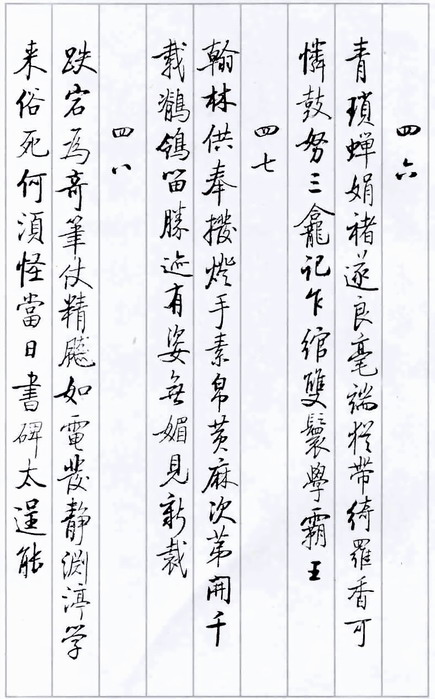 四六
青瑣蟬娟褚遂良毫端猶帶綺羅香可
憐鼓努三龕記乍綰雙鬟學霸王
四七
翰林供奉撥燈手素帛黄麻次第開千
載鶺鴒留勝迹有姿無媚見新裁
四八
跌宕爲奇筆仗精飈如電發静淵渟学
来俗死何須怪當日書碑太逞能